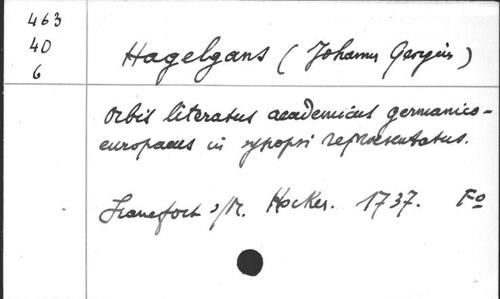 463
40
6
Hagelgans (Johannes Georgius)
Orbis literatus academicus germanico-
europaeus in synopsi repraesentatus.
Francfort s/M. Hocker. 1737. Fo